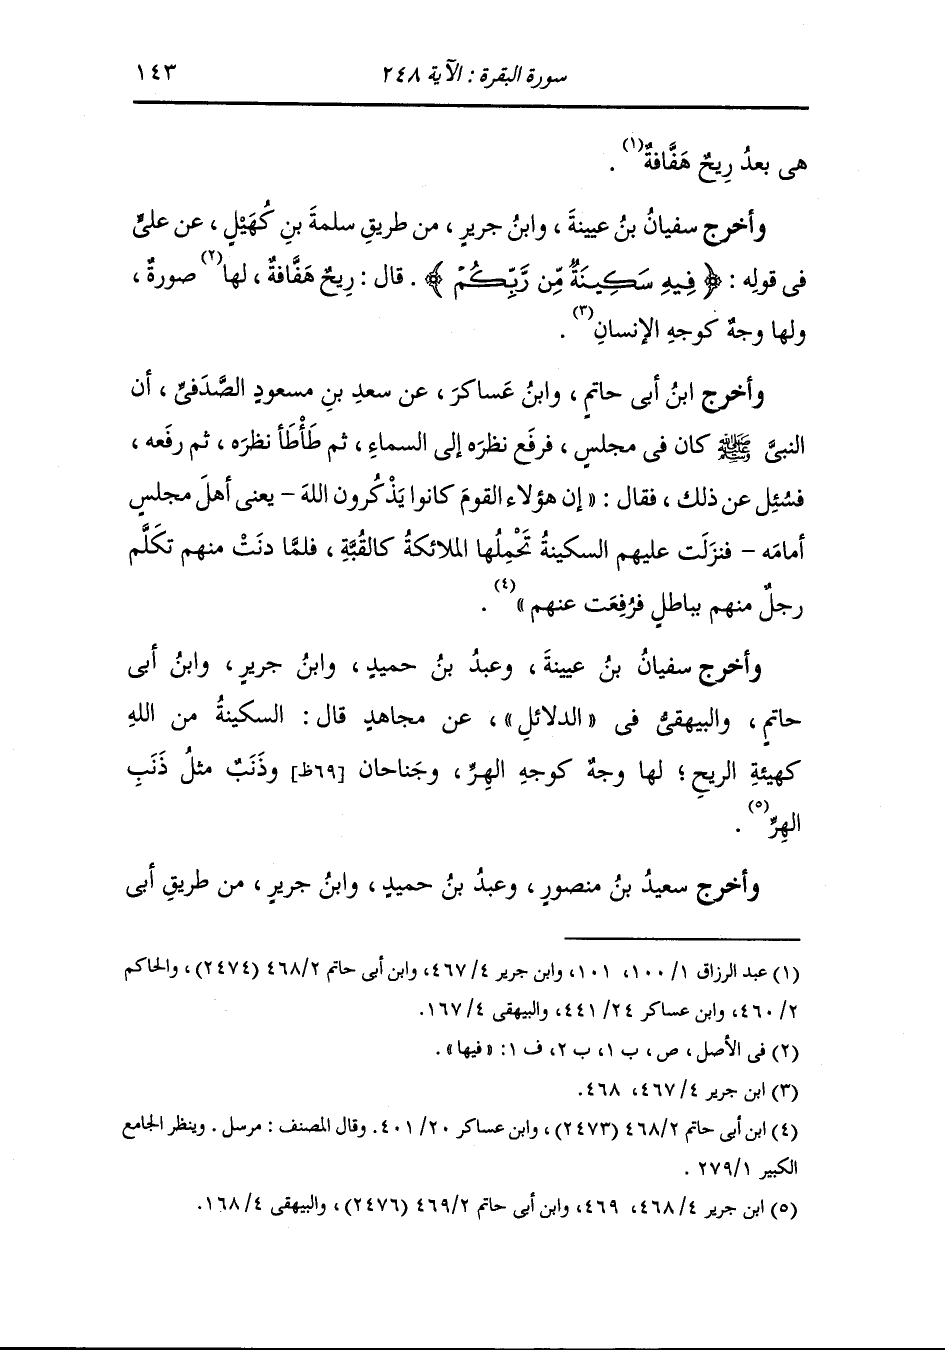 سورة البقرة : الآية ٢٤٨ ١٤٣
هى بعدُ رِيحٌ هَفَّافةٌ(١) .
وأخرج سفيانُ بنُ عيينةَ ، وابنُ جريرٍ ، من طريقِ سلمةَ بنِ كُهَيْلٍ ، عن علىٍّ
فى قولِه : ﴿ فِيهِ سَكِينَةٌ مِّن رَّبِّكُمْ ﴾ . قال : رِيحٌ هَفَّافةٌ ، لها(٢) صورةٌ ،
ولها وجهٌ كوجهِ الإنسانِ(٣) .
وأخرج ابنُ أبى حاتمٍ ، وابنُ عَساكرَ ، عن سعدِ بنِ مسعودٍ الصَّدَفىِّ ، أن
النبىَّ ﷺ كان فى مجلسٍ ، فرفَع نظرَه إلى السماءِ ، ثم طَأْطَأ نظرَه ، ثم رفَعه ،
فسُئِل عن ذلك ، فقال : « إن هؤلاء القومَ كانوا يَذْكُرون اللهَ – يعنى أهلَ مجلسٍ
أمامَه – فنزَلَت عليهم السكينةُ تَحْمِلُها الملائكةُ كالقُبَّةِ ، فلمَّا دنَتْ منهم تكلَّم
رجلٌ منهم بباطلٍ فرُفِعَت عنهم »(٤) .
وأخرج سفيانُ بنُ عيينةَ ، وعبدُ بنُ حميدٍ ، وابنُ جريرٍ ، وابنُ أبى
حاتمٍ ، والبيهقىُّ فى « الدلائلِ » ، عن مجاهدٍ قال : السكينةُ من اللهِ
كهيئةِ الريحِ ؛ لها وجهٌ كوجهِ الهِرِّ ، وجَناحان [٦٩ظ] وذَنَبٌ مثلُ ذَنَبِ
الهِرِّ(٥) .
وأخرج سعيدُ بنُ منصورٍ ، وعبدُ بنُ حميدٍ ، وابنُ جريرٍ ، من طريقِ أبى
(١) عبد الرزاق ١/ ١٠٠، ١٠١، وابن جرير ٤/ ٤٦٧، وابن أبى حاتم ٤٦٨/٢ (٢٤٧٤) ، والحاكم
٢/ ٤٦٠، وابن عساكر ٢٤/ ٤٤١، والبيهقى ٤/ ١٦٧.
(٢) فى الأصل ، ص ، ب ١، ب ٢، ف ١: « فيها » .
(٣) ابن جرير ٤/ ٤٦٧، ٤٦٨.
(٤) ابن أبى حاتم ٤٦٨/٢ (٢٤٧٣) ، وابن عساكر ٢٠/ ٤٠١. وقال المصنف : مرسل . وينظر الجامع
الكبير ٢٧٩/١ .
(٥) ابن جرير ٤/ ٤٦٨، ٤٦٩، وابن أبى حاتم ٤٦٩/٢ (٢٤٧٦) ، والبيهقى ٤/ ١٦٨.